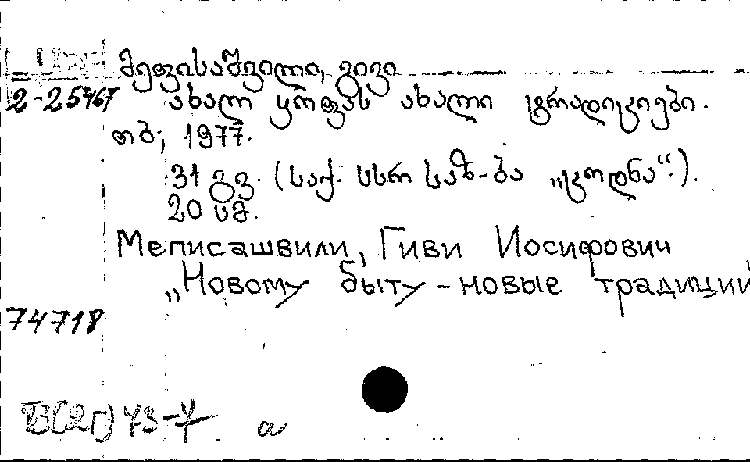 მეფისაშვილი, გივი
2-25467 ახალ ყოფას ახალი ტრადიციები.
თბ., 1977.
31 გვ. (საქ. სსრ საზ-ბა „ცოდნა“.).
20 სმ.
Меписашвили, Гиви Иосифович
„Новому быту - новые традиции
74718
43-4 а